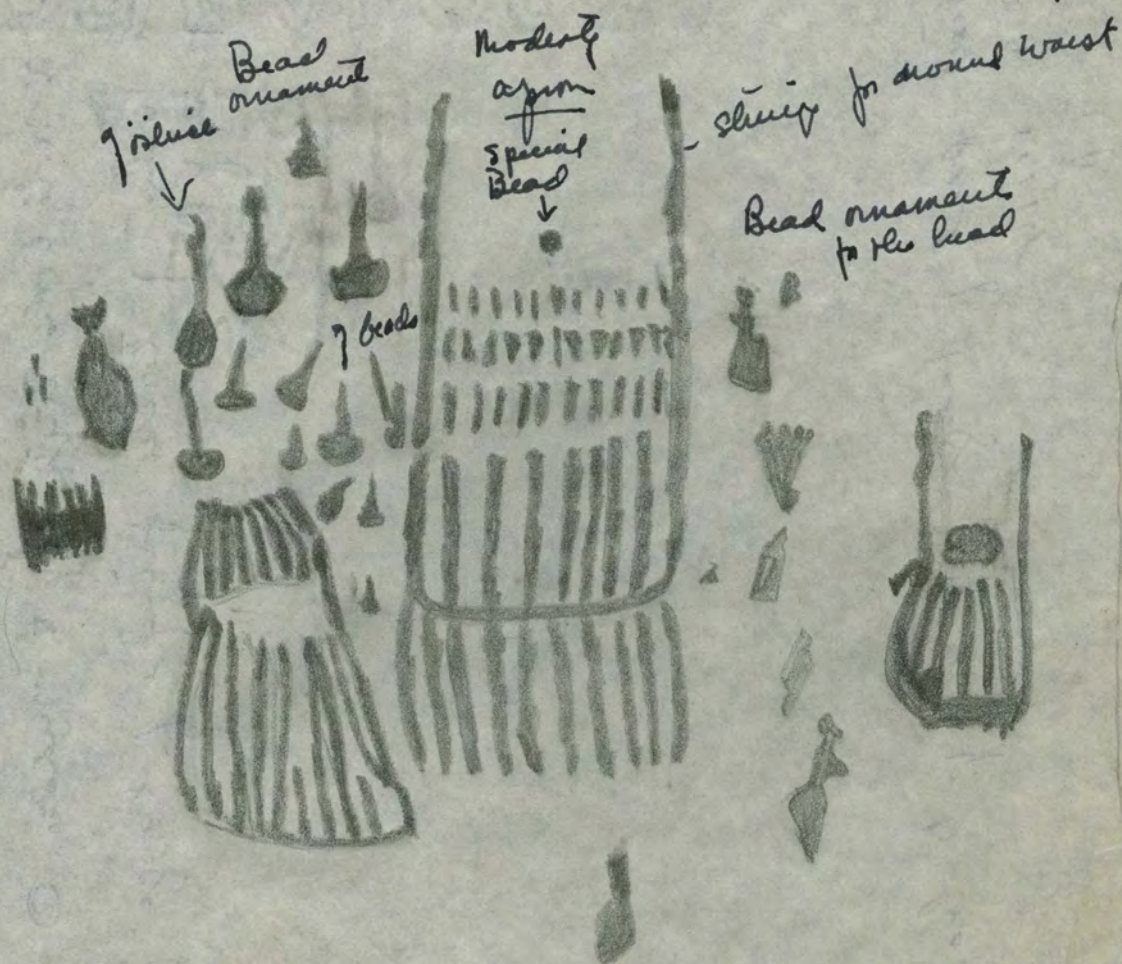 Bead
ornament
Modesty
apron
Special
Bead
string for around waist
Bead ornaments
for the head
7 beads